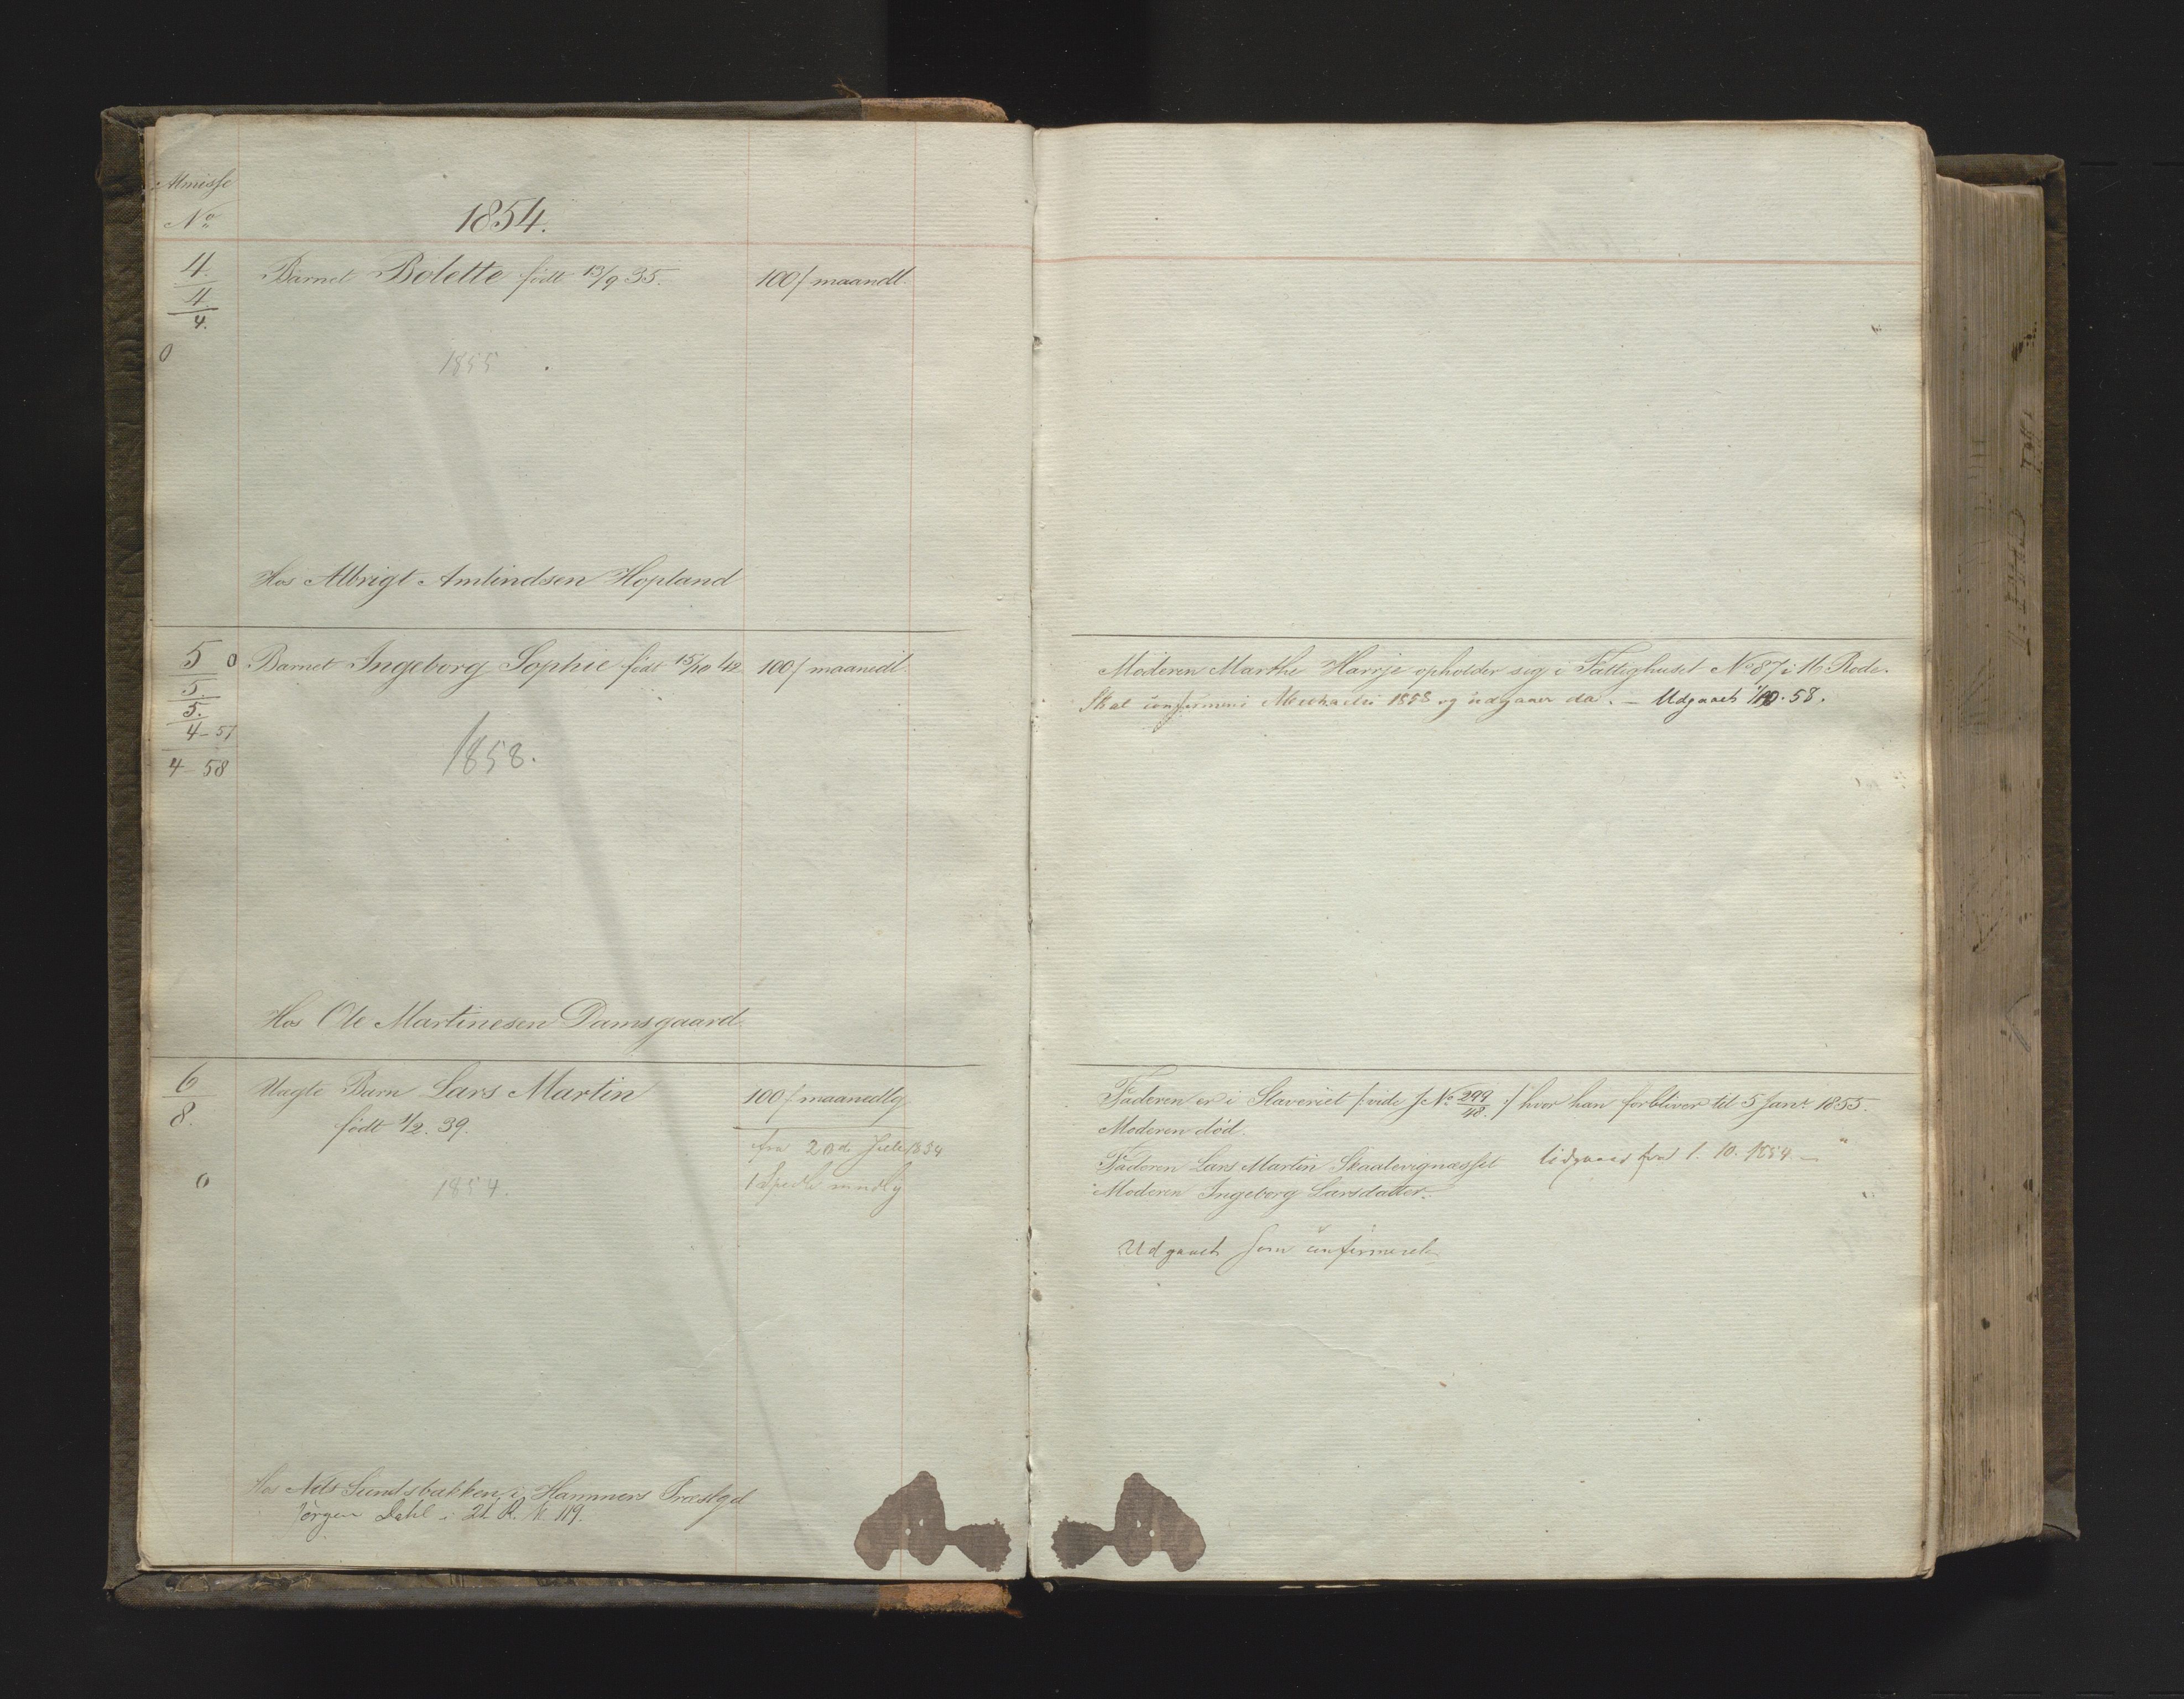 Almisse
No
1854.
4.
4
4.
0
Barnet Bolette født 13/9 35.
100ſ maandl.
1855
Hos Albrigt Amlindsen Hopland
5 0
5.
5.
4-57
4-58
Barnet Ingeborg Sophie født 15/10 42
100ſ maanedl
1858.
Hos Ole Martinesen Damsgaard
6
8.
0
Uægte Barn Lars Martin
født 1/2. 39.
100ſ maanedlig
fra Juli 1854
1 Spedlr mndlig
1854.
Hos Nels Sundsbakken i Hammers Præstgd
Jørgen Dahl i 21 R. No 119.
Moderen Marthe Harrje opholder sig i Fattighuset No 87 i 16 Rode.
Skal confirmeres i 1858 og udgaaer da. – Udgaaet 1/10. 58.
Faderen er i Slaveriet /: vide J No 299/48. :/ hvor han forbliver til 5 Janr 1855.
Moderen død.
Faderen Lars Martin Skaalevignæsset Udgaaet fra 1. 10. 1854 –
Moderen Ingeborg Larsdatter.
Udgaaet som confirmeret